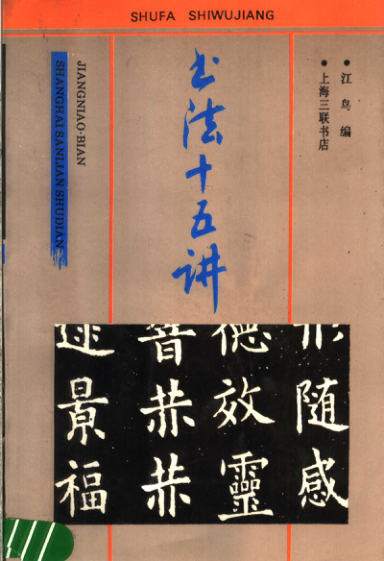 SHUFA SHIWUJIANG
● 江鸟 编
● 上海三联书店
书法十五讲
JIANGNIAO·BIAN
SHANGHAI SANLIAN SHUDIAN
随感
德效靈
景福